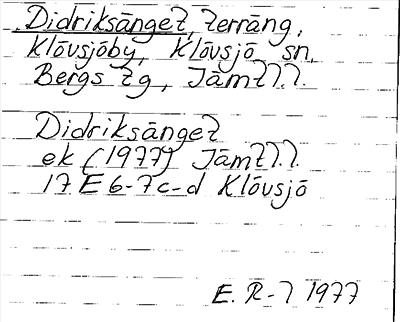 Didriksänget, terräng,
Klövsjöby, Klövsjö sn,
Bergs tg, Jämtl.
Didriksänget
ek (1977) Jämtl.
17 E 6-7c-d Klövsjö
E. R-l 1977